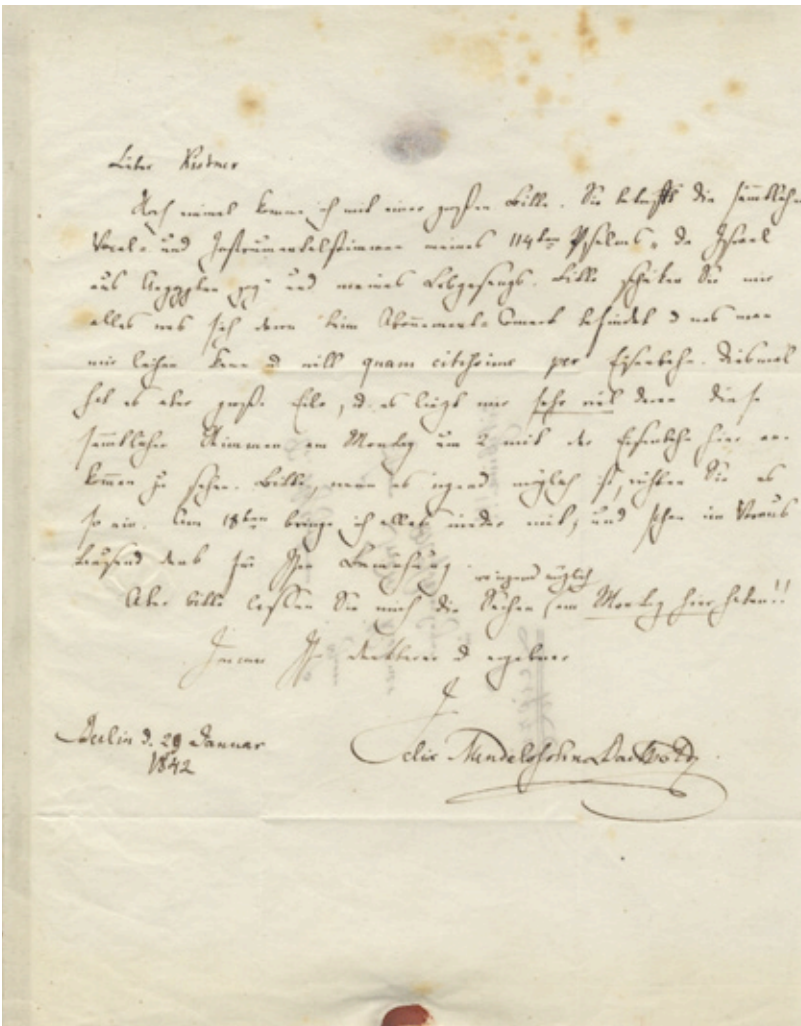 Lieber Kistner
Noch einmal komme ich mit einer großen Bitte. Sie betrifft die sämmtlichen
Vocal- und Instrumentalstimmen meines 114ten Psalms „da Israel
aus Aegypten zog“ und meines Lobgesangs. Bitte schicken Sie mir
alles was sich davon beim Abonnements Concert befindet u was man
mir leihen kann u will quam citissime per Eisenbahn. Diesmal
hat es aber große Eile, u. es liegt mir sehr viel daran diese
sämmtlichen Stimmen am Montag um 2 mit der Eisenbahn hier an-
kommen zu sehen. Bitte, wenn es irgend möglich ist, richten Sie es
so ein. Am 18ten bringe ich alles wieder mit, und schon im Voraus
tausend Dank für Ihre Bemühung.
wo irgend möglich
Aber bitte lassen Sie mich die Sachen am Montag hier haben!!
Immer Ihr dankbarer u ergebner
Felix Mendelssohn Bartholdy
Berlin d. 29 Januar
1842